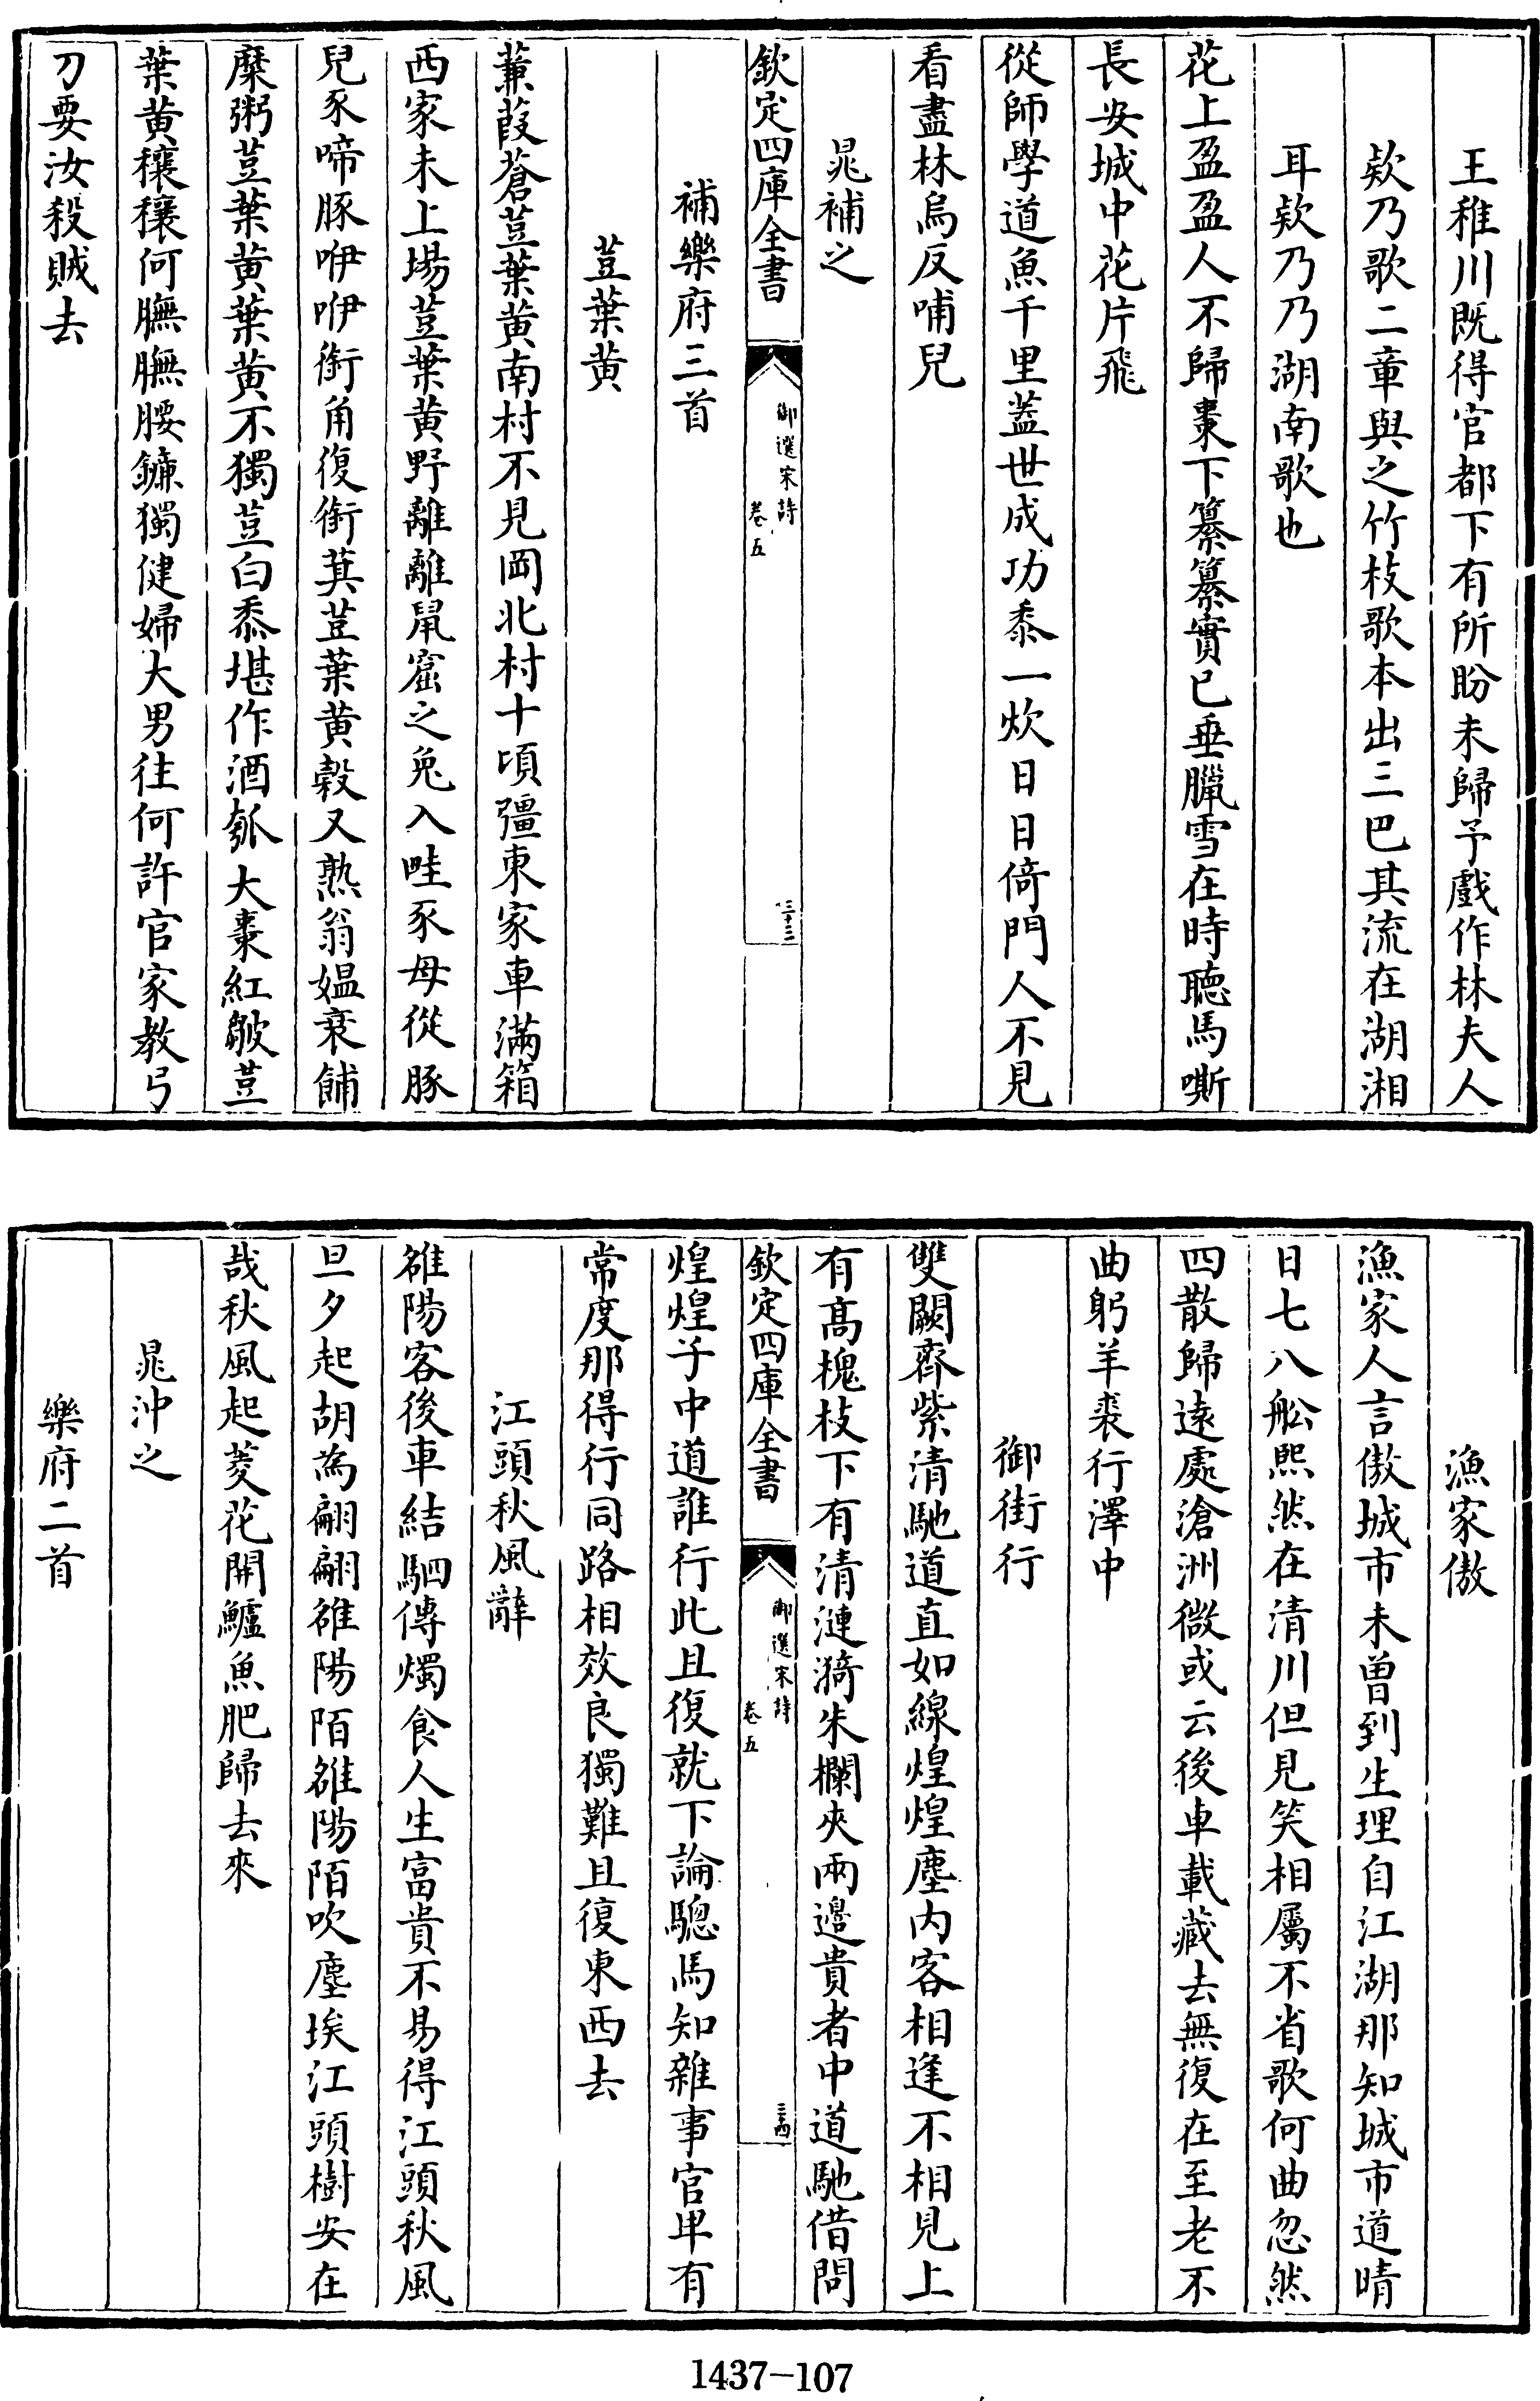 王稚川既得官都下有所盼未歸予戲作林夫人
欵乃歌二章與之竹枝歌本出三巴其流在湖湘
耳欵乃乃湖南歌也
花上盈盈人不歸棗下纂纂實已垂臘雪在時聽馬嘶
長安城中花片飛
從師學道魚千里蓋世成功黍一炊日日倚門人不見
看盡林烏反哺兒
晁補之
欽定四庫全書
御選宋詩
卷五
三十三
補樂府三首
荳葉黃
蒹葭蒼荳葉黃南村不見岡北村十頃彊東家車滿箱
西家未上場荳葉黃野離離鼠窟之兔入畦豕母從豚
兒豕啼豚咿咿銜角復銜萁荳葉黃穀又熟翁媪衰餔
糜粥荳葉黃葉黃不獨荳白黍堪作酒瓠大棗紅皺荳
葉黃穰穰何膴膴腰鐮獨健婦大男往何許官家教弓
刀要汝殺賊去
漁家傲
漁家人言傲城市未曽到生理自江湖那知城市道晴
日七八舩熙然在清川但見笑相屬不省歌何曲忽然
四散歸遠處滄洲微或云後車載藏去無復在至老不
曲躬羊裘行澤中
御街行
雙闕齊紫清馳道直如線煌煌塵內客相逢不相見上
有髙槐枝下有清漣漪朱欄夾兩邉貴者中道馳借問
欽定四庫全書
御選宋詩
卷五
三十四
煌煌子中道誰行此且復就下論驄馬知雜事官卑有
常度那得行同路相效良獨難且復東西去
江頭秋風辭
雒陽客後車結駟傳燭食人生富貴不易得江頭秋風
旦夕起胡為翩翩雒陽陌雒陽陌吹塵埃江頭樹安在
哉秋風起菱花開鱸魚肥歸去來
晁沖之
樂府二首
1437-107